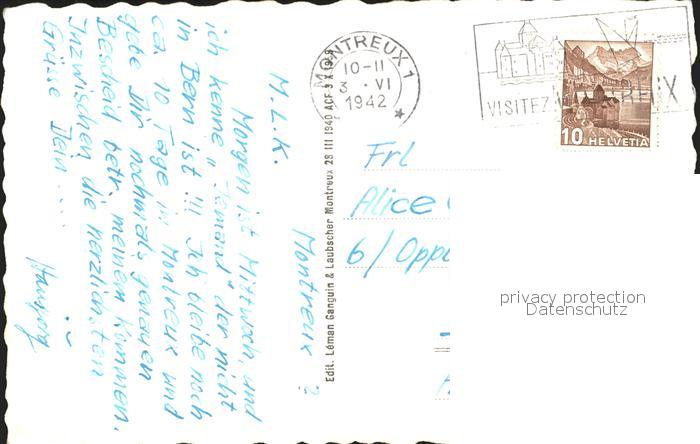 Montreux 2
M. L. K.
Morgen ist Mittwoch und
ich kenne "Jemand" der nicht
in Bern ist !!! Ich bleibe noch
ca. 10 Tage in Montreux und
gebe Dir nochmals genauen
Bescheid betr. meinem Kommen.
Inzwischen die herzlichsten
Grüsse Dein ....
Hansjörg
Edit. Léman Ganguin & Laubscher Montreux 28 III 1940 ACF 3 X 1939
MONTREUX 1
10-11
3 · VI
1942
VISITEZ MONTREUX
10 HELVETIA
Frl
Alice
6/Oppl
privacy protection
Datenschutz